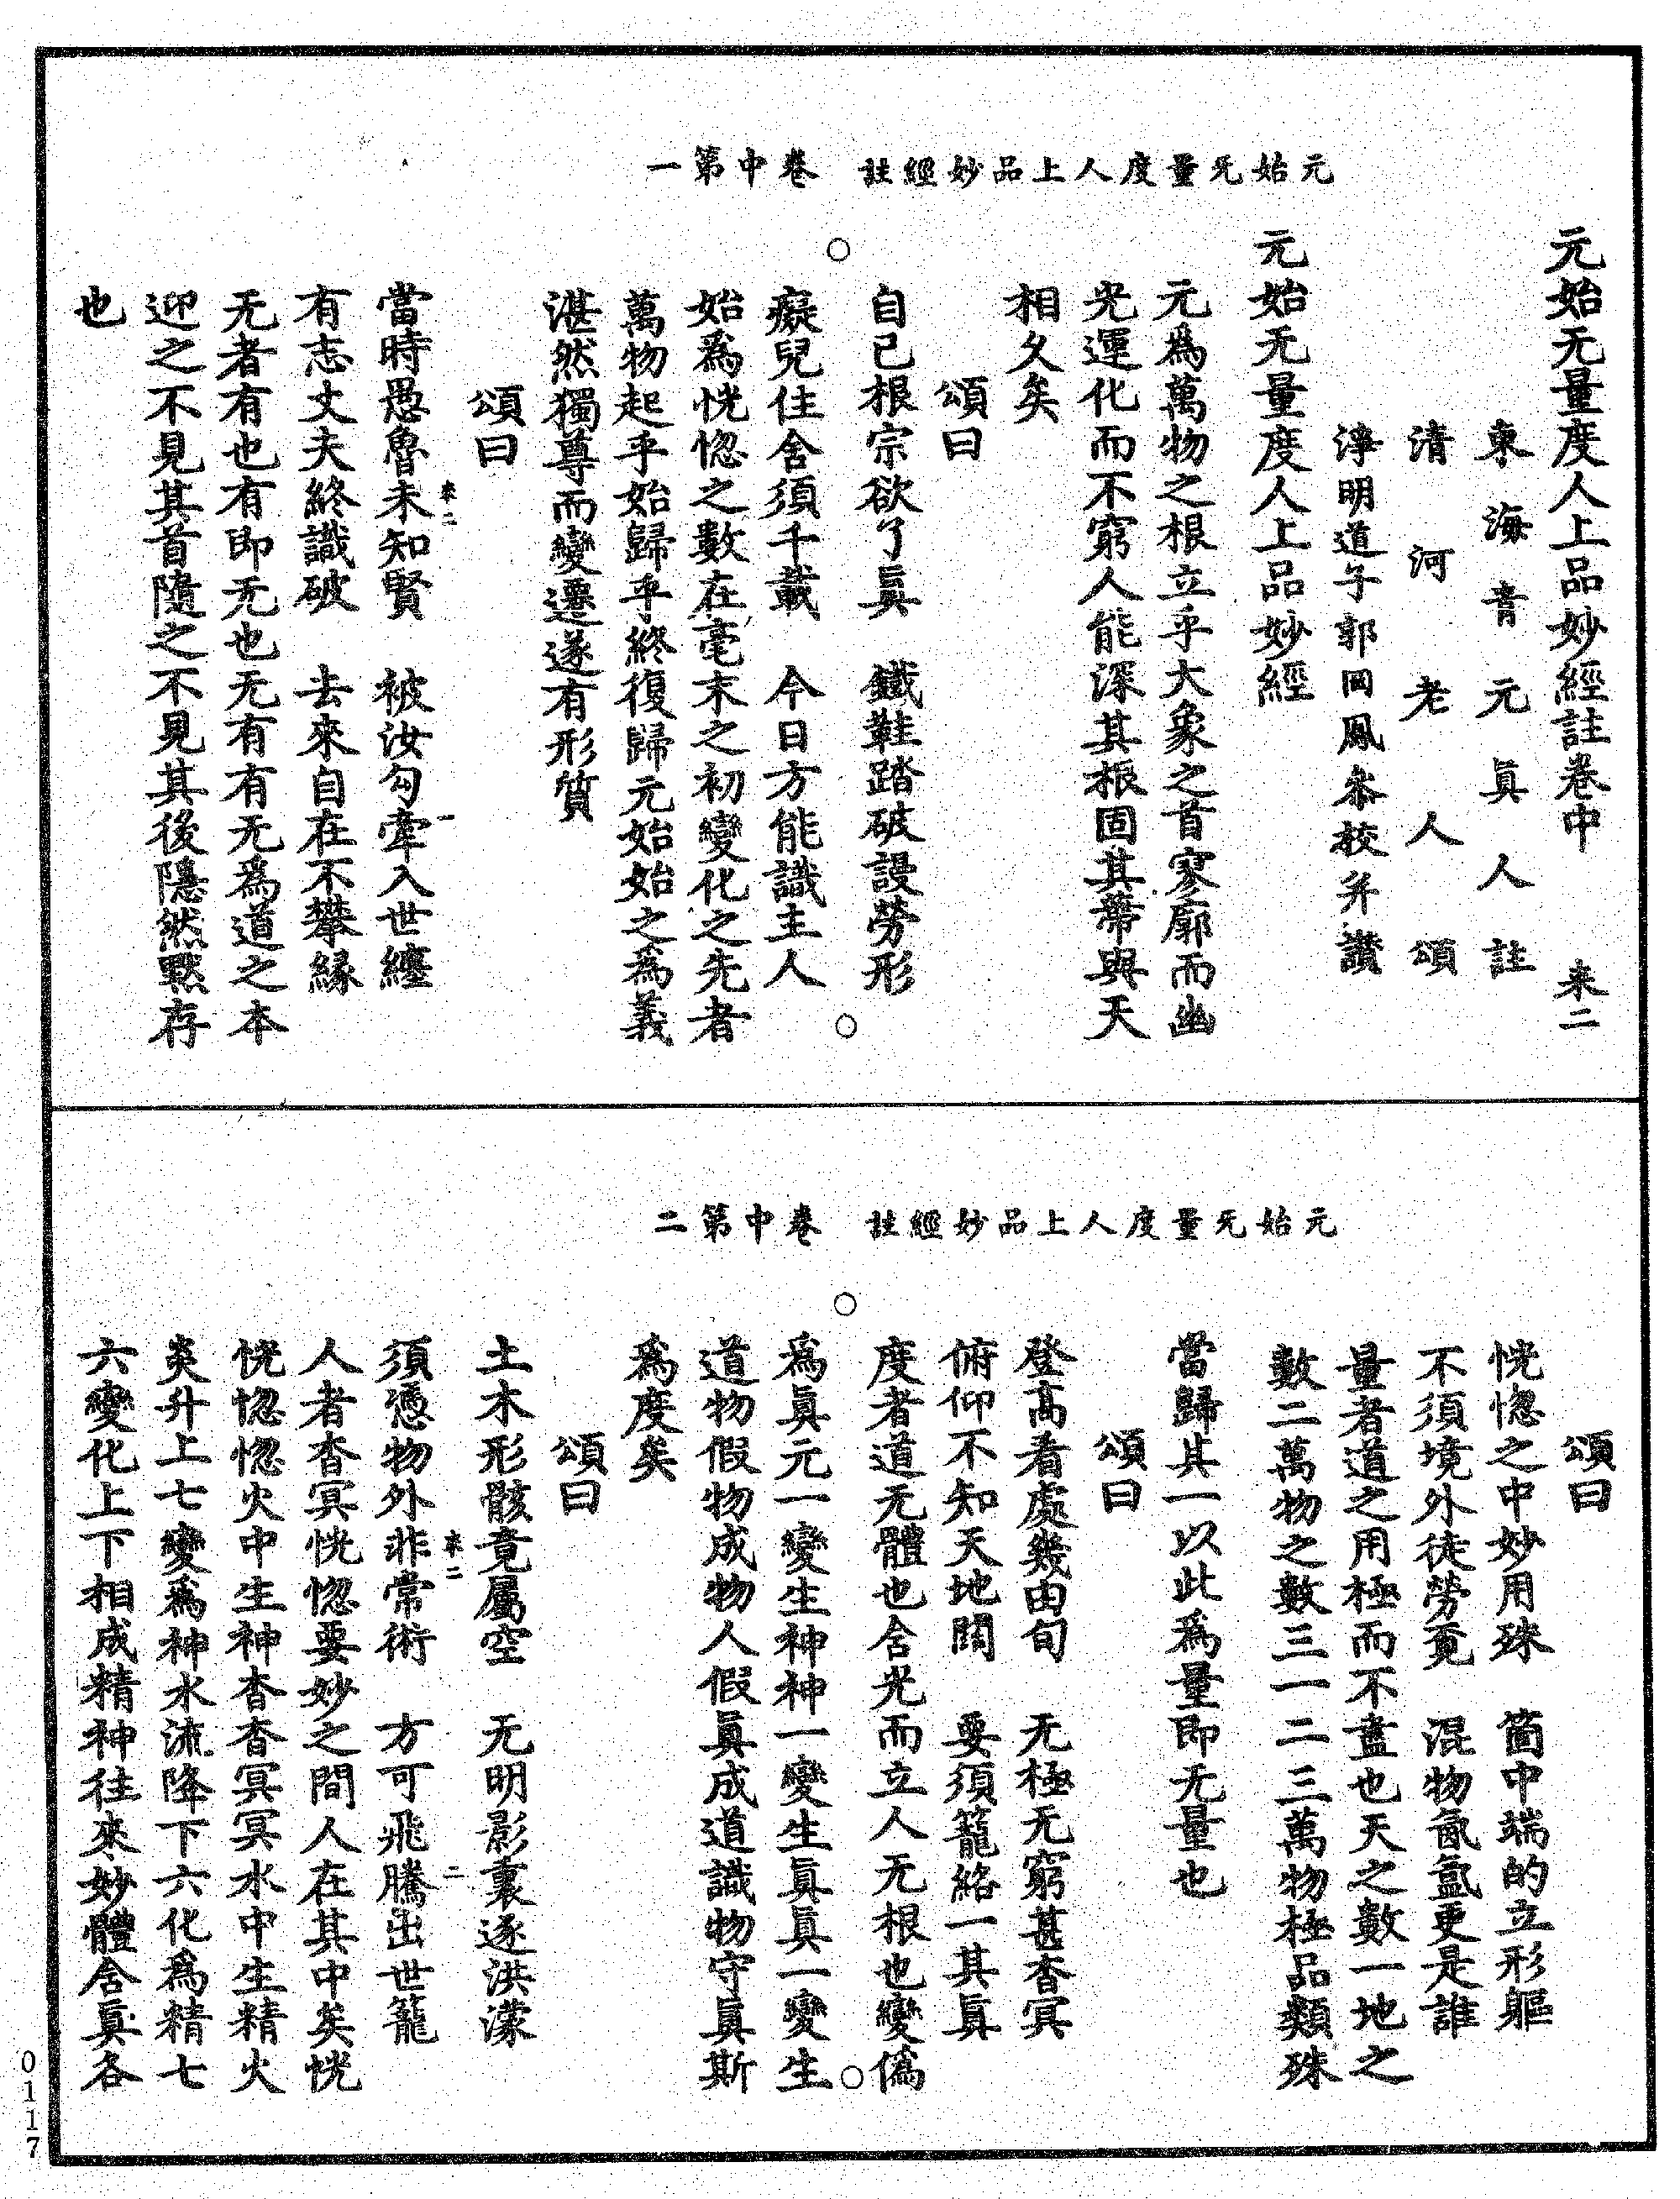 元始无量度人上品妙經註　卷中第一
元始无量度人上品妙經註卷中　来二
東海青元眞人註
清河老人頌
淳明道子郭岡鳳叅校并讚
元始无量度人上品妙經
元爲萬物之根立乎大象之首寥廓而幽
光運化而不窮人能深其根固其蔕與天
相久矣
頌曰
自己根宗欲了眞　鐵鞋踏破謾勞形
癡兒住舍須千載　今日方能識主人
始爲恍惚之數在毫末之初變化之先者
萬物起乎始歸乎終復歸元始始之爲義
湛然獨尊而變遷遂有形質
頌曰
當時愚魯未知賢　被汝勾牽入世纏
来二　一
有志丈夫終識破　去來自在不攀緣
无者有也有即无也无有有无爲道之本
迎之不見其首隨之不見其後隱然默存
也
元始无量度人上品妙經註　卷中第二
頌曰
恍惚之中妙用殊　箇中端的立形軀
不須境外徒勞覓　混物氤氳更是誰
量者道之用極而不盡也天之數一地之
數二萬物之數三一二三萬物極品類殊
當歸其一以此爲量即无量也
頌曰
登高看處幾由旬　无極无窮甚杳冥
俯仰不知天地闊　要須籠絡一其眞
度者道无體也含光而立人无根也變僞
爲眞元一變生神神一變生眞眞一變生
道物假物成物人假眞成道識物守眞斯
爲度矣
頌曰
土木形骸竟屬空　无明影裏逐洪濛
須憑物外非常術　方可飛騰出世籠
来二　二
人者杳冥恍惚要妙之間人在其中矣恍
恍惚惚火中生神杳杳冥冥水中生精火
炎升上七變爲神水流降下六化爲精七
六變化上下相成精神往來妙體含眞各
0117